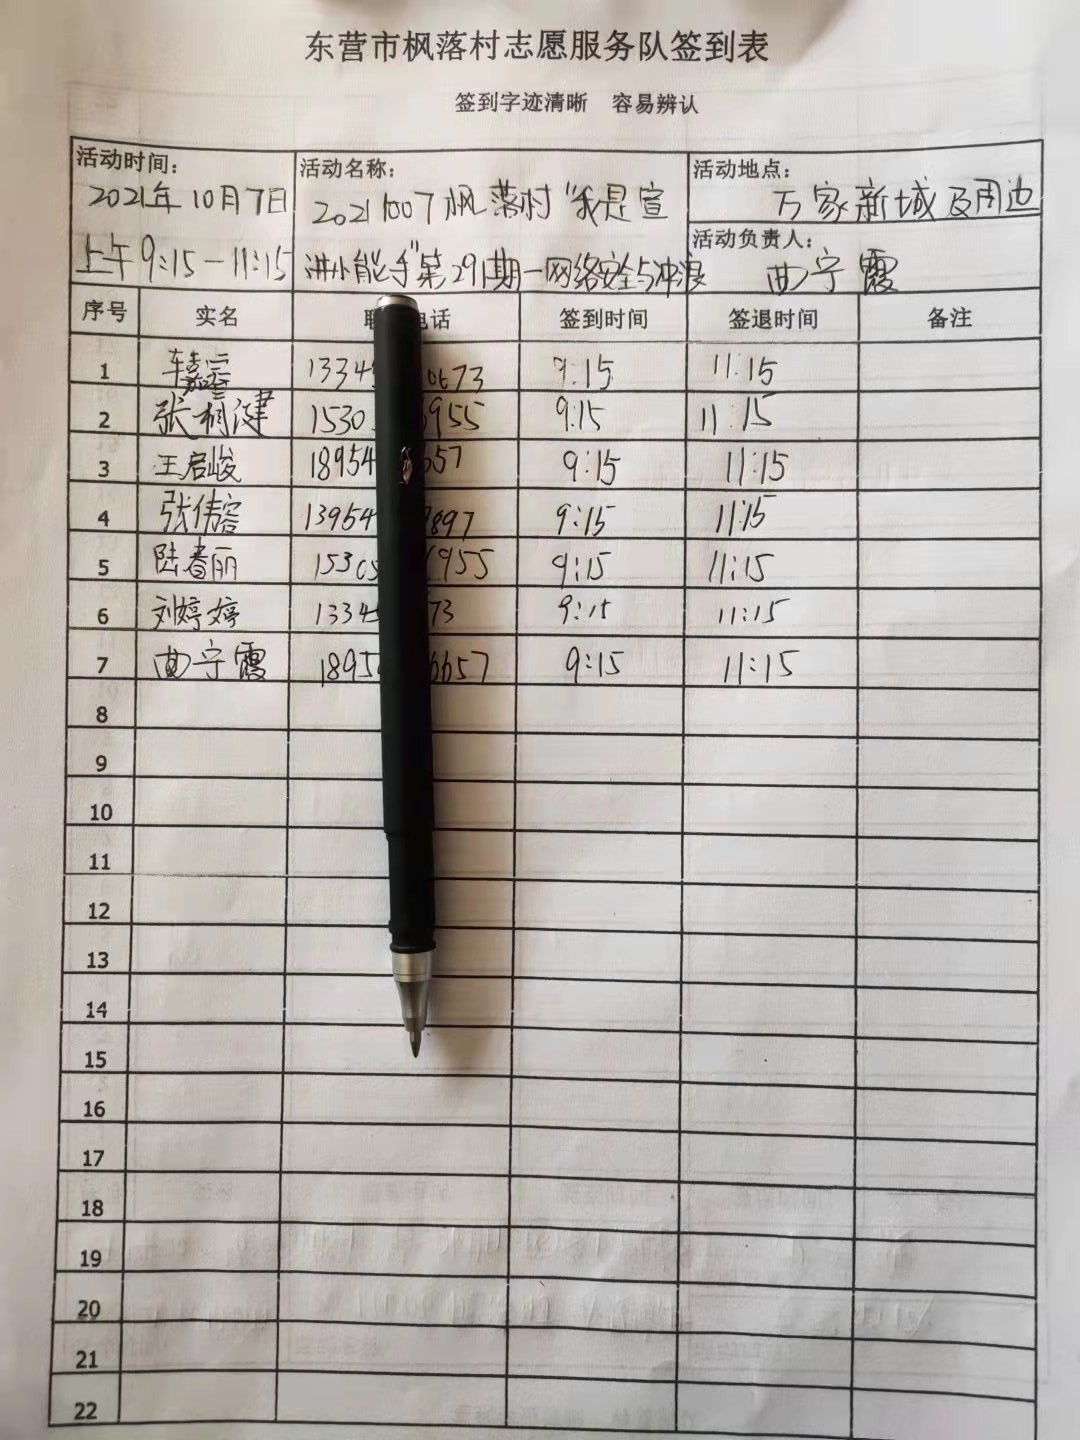 东营市枫落村志愿服务队签到表
签到字迹清晰 容易辨认
活动时间: 活动名称: 活动地点:
2021年10月7日 20211007枫落村“我是宣 万家新城及周边
活动负责人:
上午9:15-11:15 讲小能手”第291期-网络安全与冲浪 曲宁霞
序号 实名 电话 签到时间 签退时间 备注
1 车嘉 1334 0673 9:15 11:15
2 张桐健 1530 955 9:15 11:15
3 王启峻 18954 657 9:15 11:15
4 张倩容 13954 897 9:15 11:15
5 陆春丽 15305 955 9:15 11:15
6 刘婷婷 1334 73 9:15 11:15
7 曲宁霞 1895 6657 9:15 11:15
8
9
10
11
12
13
14
15
16
17
18
19
20
21
22